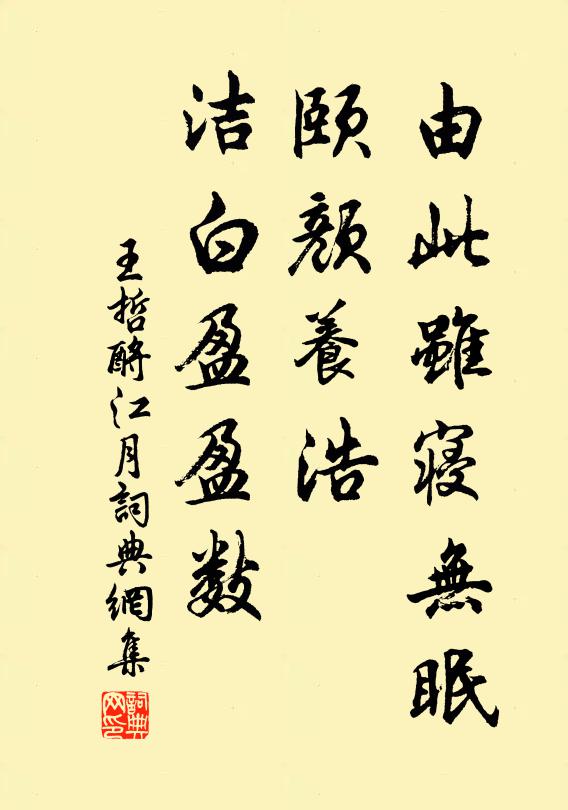 由此雖寝無眠
頤顏養浩
洁白盈盈数
王哲酹江月詞典網集
詞典网印